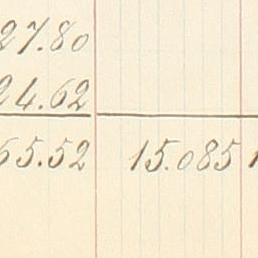 27.80
24.62
65.52 15.085